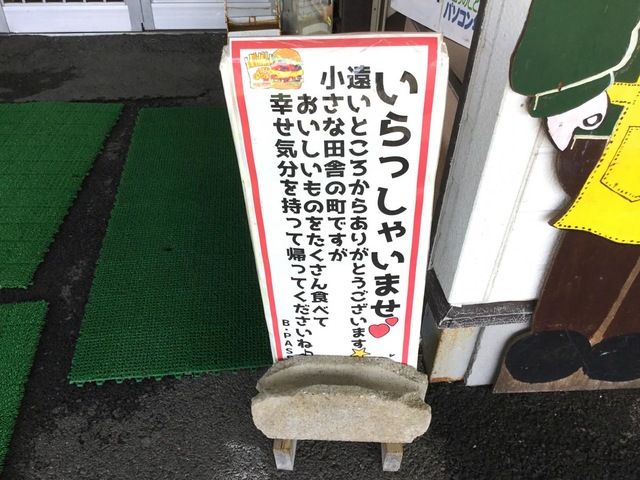 いらっしゃいませ
遠いところからありがとうございます
小さな田舎の町ですが
おいしいものをたくさん食べて
幸せ気分を持って帰ってくださいね♪
B・PAS
パソコン